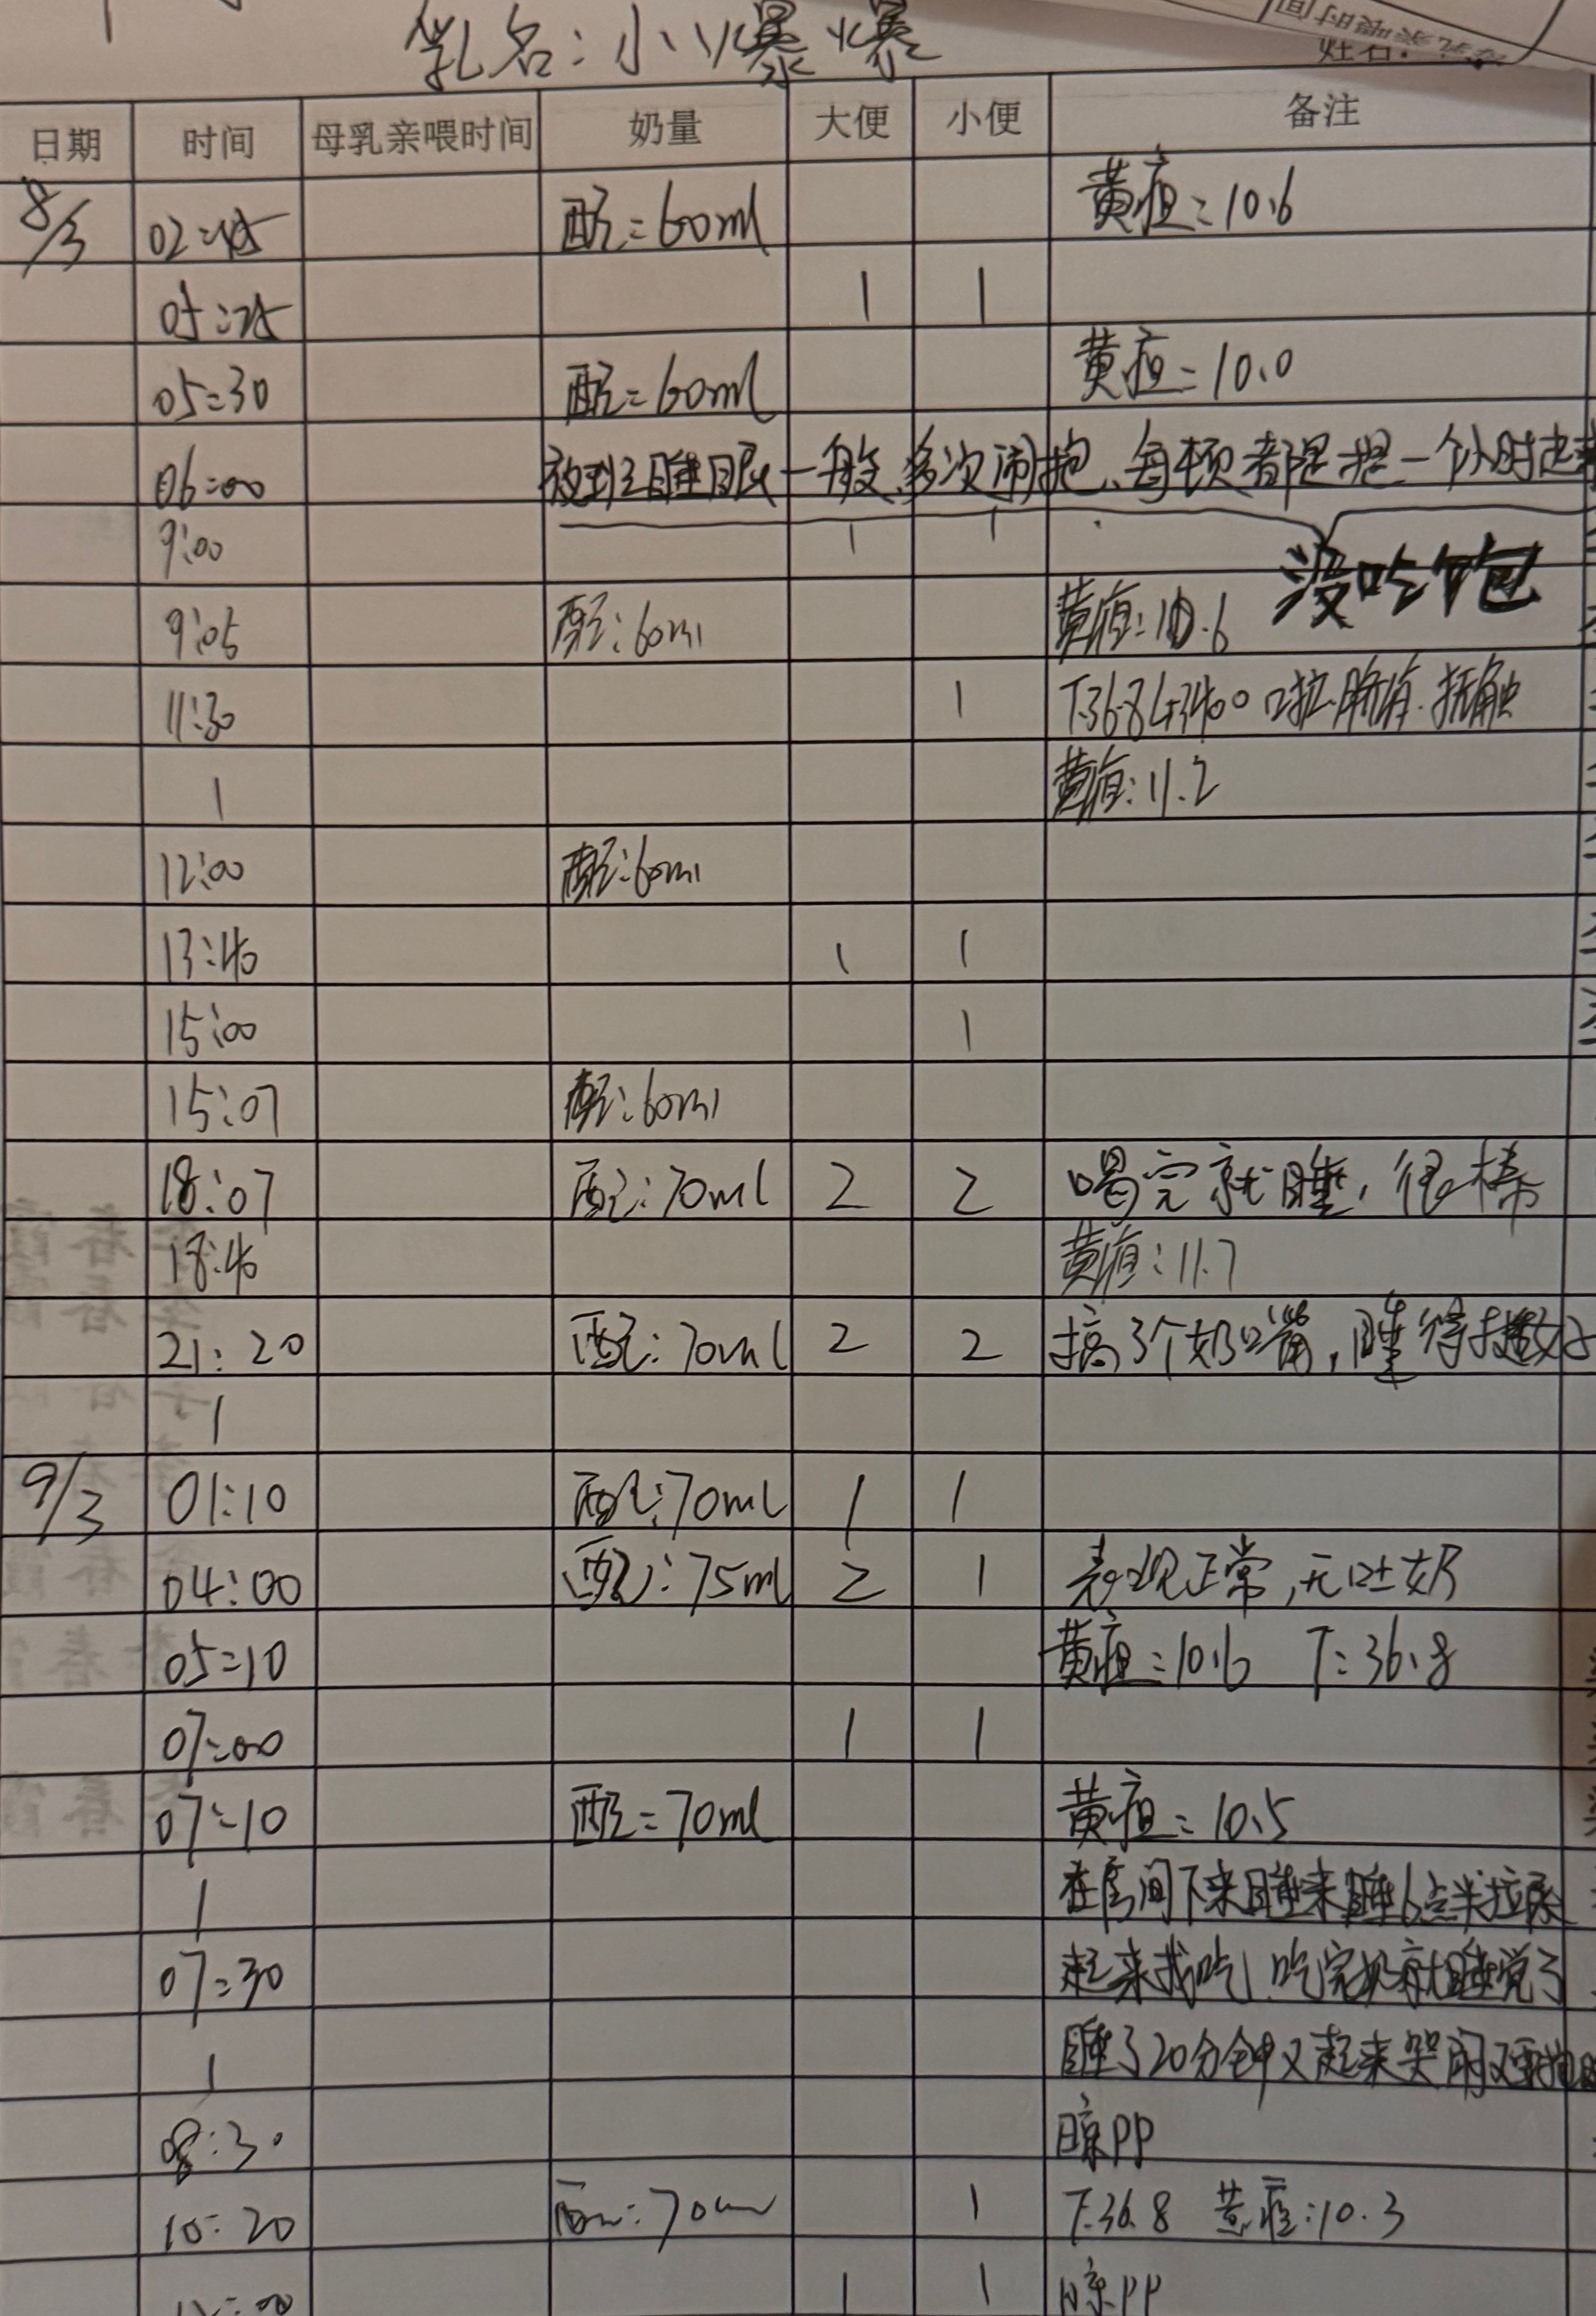 乳名：小小爆爆
姓名：
日期 时间 母乳亲喂时间 奶量 大便 小便 备注
8/3 02:45 配:60ml 黄疸:10.6
05:25 1 1
05:30 配:60ml 黄疸:10.0
06:00 夜班睡眠一般、多次闹抱、每顿都是提一个小时起来
没吃饱
9:00 1 1
9:05 配:60ml 黄疸:10.6
11:30 1 T:36.8 口拉.脐有.抚触
1 黄疸:11.2
12:00 配:60ml
13:40 1 1
15:00 1
15:07 配:60ml
18:07 配:70ml 2 2 喝完就睡，很棒
18:40 黄疸:11.7
21:20 配:70ml 2 2 搞了个奶嘴，睡得挺好
1
9/3 01:10 配:70ml 1 1
04:00 配:75ml 2 1 表现正常,无吐奶
05:10 黄疸:10.6 T:36.8
07:00 1 1
07:10 配:70ml 黄疸:10.5
1 在房间下来睡来睡6点半拉尿
07:30 起来找吃,吃完奶就睡觉了
1 睡了20分钟又起来哭闹又要抱
08:30 晾PP
10:20 配:70ml 1 T:36.8 黄疸:10.3
1 1 晾PP